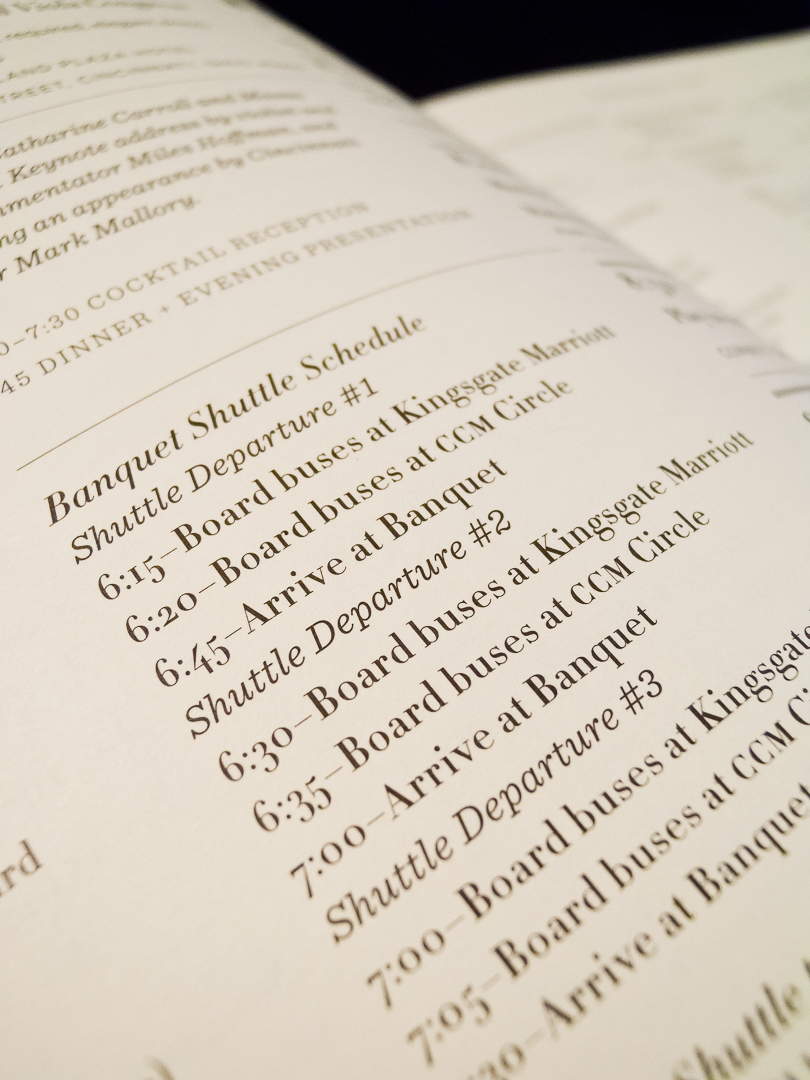 STREET, CINCINNATI
Catharine Carroll and
Keynote address by
mmentator Miles Hoffman, and
ng an appearance by Cincinnati
r Mark Mallory.
0–7:30 COCKTAIL RECEPTION
45 DINNER + EVENING PRESENTATION
Banquet Shuttle Schedule
Shuttle Departure #1
6:15–Board buses at Kingsgate Marriott
6:20–Board buses at CCM Circle
6:45–Arrive at Banquet
Shuttle Departure #2
6:30–Board buses at Kingsgate Marriott
6:35–Board buses at CCM Circle
7:00–Arrive at Banquet
Shuttle Departure #3
7:00–Board buses at Kingsgate
7:05–Board buses at CCM C
30–Arrive at Banquet
Shuttle
rd